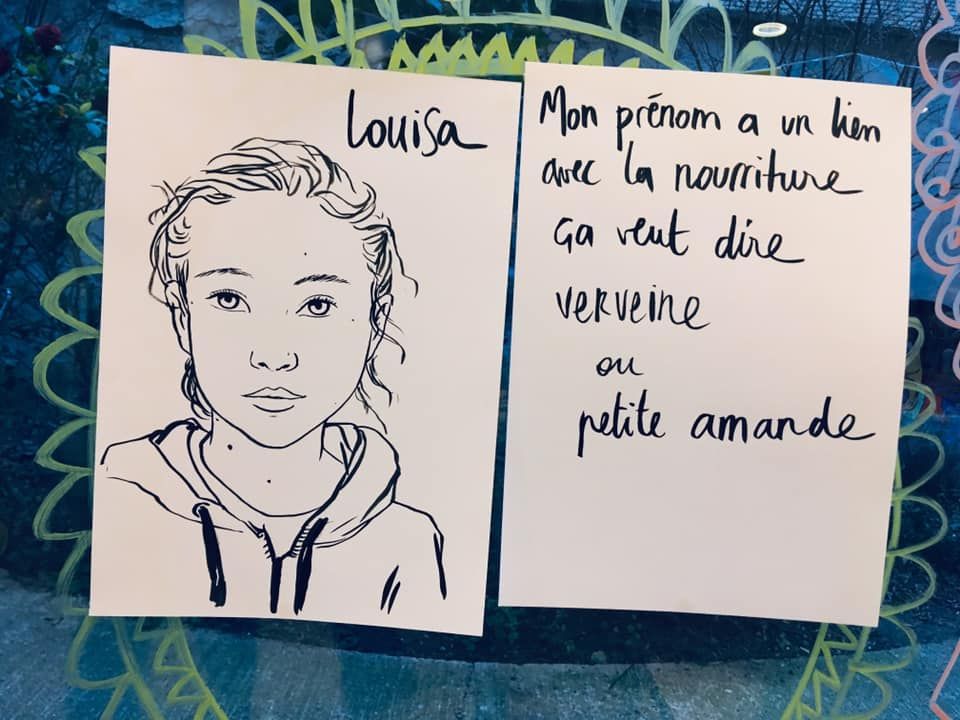 Louisa
Mon prénom a un lien
avec la nourriture
ça veut dire
verveine
ou
petite amande